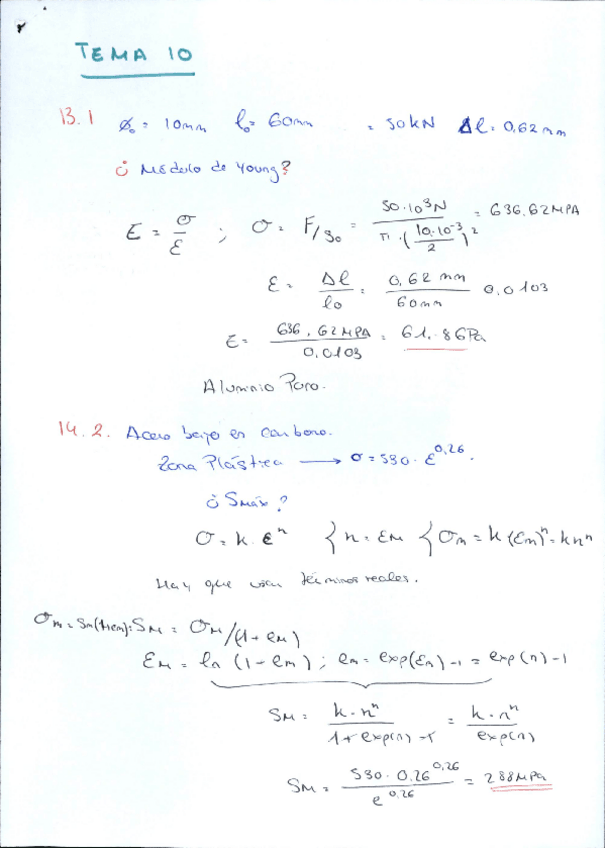 TEMA 10
13.1 ϕ₀ = 10mm l₀ = 60mm = 50kN Δl = 0,62mm
¿ Módulo de Young?
E = σ/ε ; σ = F/S₀ = 50·10³N / π·(10·10⁻³/2)² = 636,62MPA
ε = Δl/l₀ = 0,62 mm/60mm 0,0103
E = 636,62MPA/0,0103 = 61,8 GPa
Aluminio Puro.
14.2. Acero bajo en carbono.
Zona Plástica → σ = 530 · ε^0,26.
¿ Smáx ?
σ = k · ε^n { n = εM { σm = k (εm)^n = k n^n
Hay que usar términos reales.
σm = Sm(1+em); SM = σM/(1+eM)
εM = ln (1-em) ; em = exp(εm) -1 = exp(n)-1
SM = k·n^n / 1+exp(n)-1 = k·n^n / exp(n)
SM = 530·0,26^0,26 / e^0,26 = 288MPa